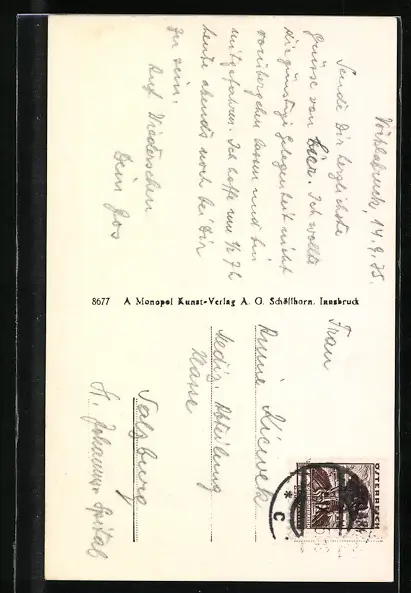 Vöcklabruck, 14.9.35.
Sende Dir herzlichste
Grüsse von hier. Ich wollte
die günstige Gelegenheit nicht
vorübergehen lassen und bin
mitgefahren. Ich hoffe um ½ 7 h
heute abends noch bei Dir
zu sein.
Auf Wiedersehen
Dein Jos
8677 A Monopol Kunst-Verlag A. G. Schöllhorn. Innsbruck
Frau
Annie
Mediz. Abteilung
Klasse
Salzburg
St. Johannes-Spital
ÖSTERREICH
* C